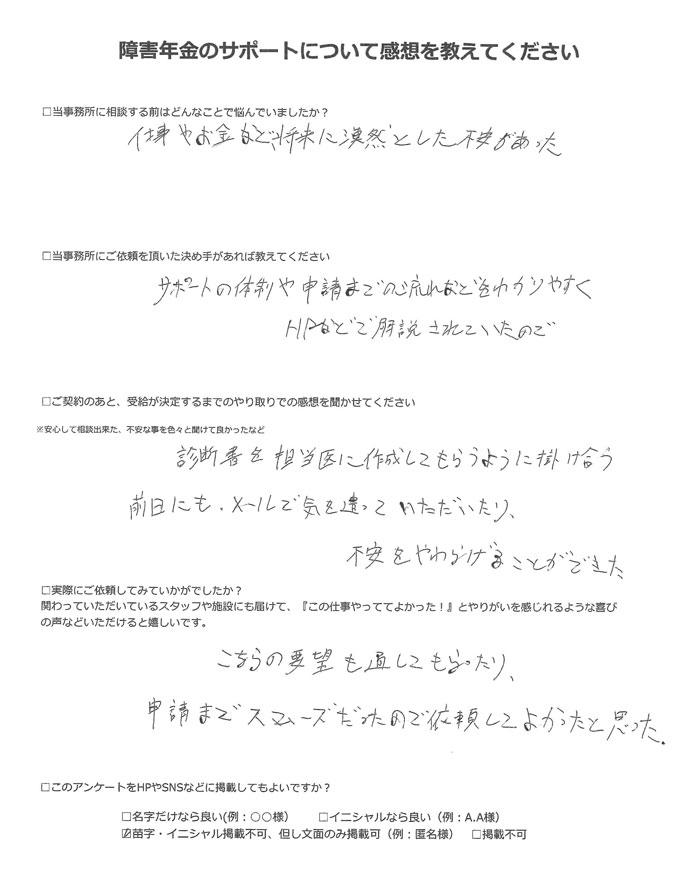 障害年金のサポートについて感想を教えてください
□当事務所に相談する前はどんなことで悩んでいましたか？
仕事やお金など、将来に漠然とした不安があった
□当事務所にご依頼を頂いた決め手があれば教えてください
サポートの体制や申請までの流れなどをわかりやすく
HPなどで解説されていたので
□ご契約のあと、受給が決定するまでのやり取りでの感想を聞かせてください
※安心して相談出来た、不安な事を色々と聞けて良かったなど
診断書を担当医に作成してもらうように掛け合う
前日にも、メールで気を遣っていただいたり、
不安をやわらげることができた
□実際にご依頼してみていかがでしたか？
関わっていただいているスタッフや施設にも届けて、『この仕事やっててよかった！』とやりがいを感じれるような喜び
の声などいただけると嬉しいです。
こちらの要望も通してもらったり、
申請までスムーズだったので依頼してよかったと思った.
□このアンケートをHPやSNSなどに掲載してもよいですか？
□名字だけなら良い(例：○○様） □イニシャルなら良い（例：A.A様）
☑苗字・イニシャル掲載不可、但し文面のみ掲載可（例：匿名様） □掲載不可